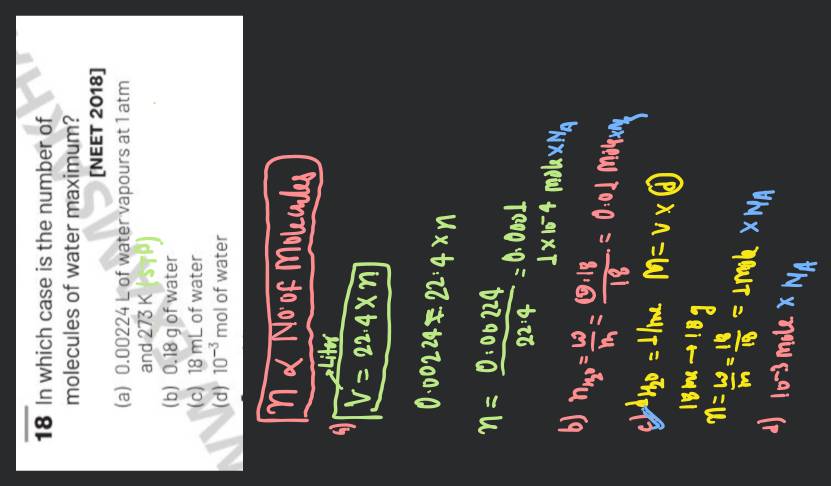 18 In which case is the number of
molecules of water maximum?
[NEET 2018]
(a) 0.00224 L of water vapours at 1 atm
and 273 K (STP)
(b) 0.18 g of water
(c) 18 mL of water
(d) 10⁻³ mol of water
n ∝ No. of Molecules
a) Liter
V = 22.4 × n
0.00224 = 22.4 × n
n = 0.00224 / 22.4 = 0.0001
1 × 10⁻⁴ mole × NA
b) nH₂O = w/m = 0.18/18 = 0.01 Mole × NA
c) dH₂O = 1 g/mL M = V × ρ
18 ml → 18 g
n = w/m = 18/18 = 1 mole × NA
d) 10⁻³ mole × NA